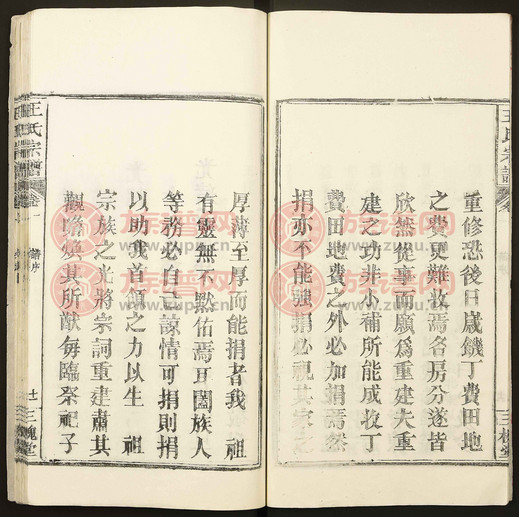 王氏宗譜
重修恐後日歲饑丁費田地
之費更難收焉各房分遂皆
欣然從事而願爲重建夫重
建之功非小補所能成收丁
費田地費之外必加捐焉然
捐亦不能強捐必視其家之
厚薄至厚而能捐者我 祖
有靈無不默佑焉耳闔族人
等務必自己諒情可捐則捐
以助我首領之力以生 祖
宗族之光將宗祠重建肅其
觀瞻煥其所猷每臨祭祀子
王氏宗譜
譜序
三槐堂
族譜网
www.zupu.cn